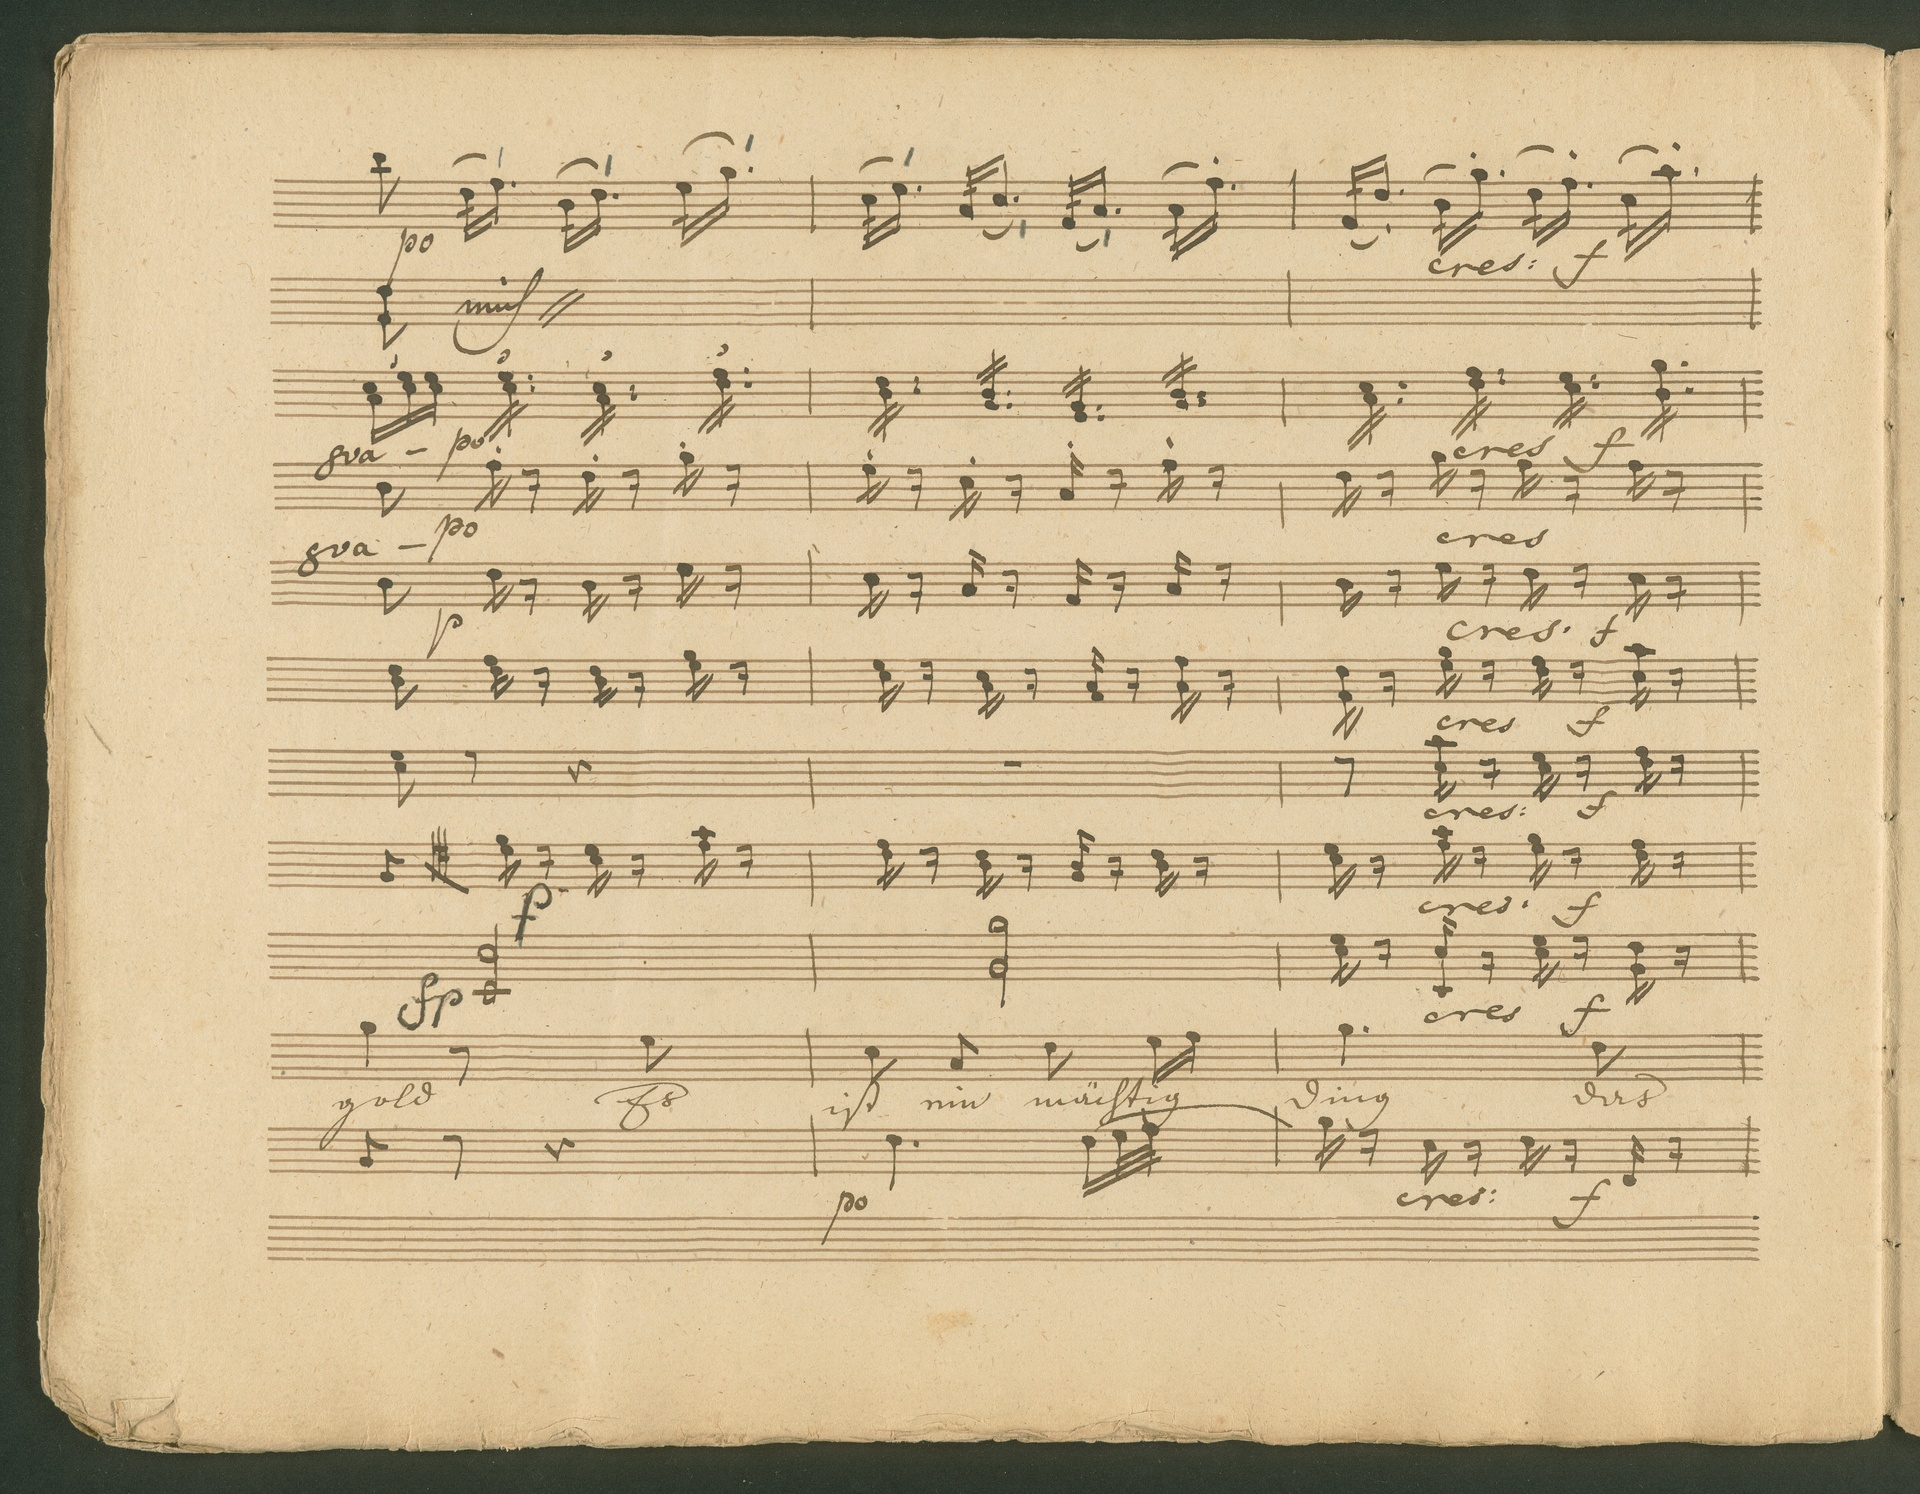 po
cres: f
unis
8va - po
cres f
8va - po
cres
p
cres: f
cres f
cres: f
p
cres: f
fp
cres f
gold Es ist ein mächtig Ding das
po
cres: f